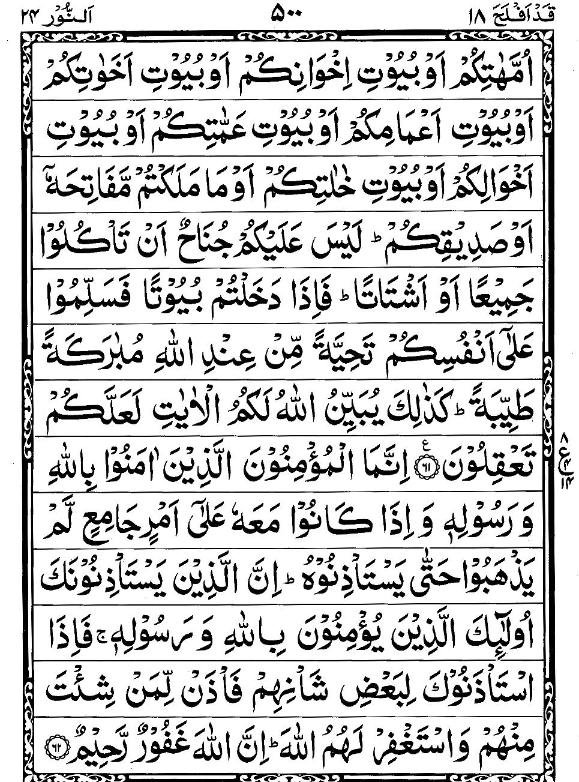 قَدْ اَفْلَحَ ١٨ ٥٠٠ اَلنُّوْر ٢٤
اُمَّهٰتِكُمْ اَوْ بُيُوْتِ اِخْوَانِكُمْ اَوْ بُيُوْتِ اَخَوٰتِكُمْ
اَوْ بُيُوْتِ اَعْمَامِكُمْ اَوْ بُيُوْتِ عَمّٰتِكُمْ اَوْ بُيُوْتِ
اَخْوَالِكُمْ اَوْ بُيُوْتِ خٰلٰتِكُمْ اَوْ مَا مَلَكْتُمْ مَّفَاتِحَهٗۤ
اَوْ صَدِيْقِكُمْ ؕ لَيْسَ عَلَيْكُمْ جُنَاحٌ اَنْ تَاْكُلُوْا
جَمِيْعًا اَوْ اَشْتَاتًا ؕ فَاِذَا دَخَلْتُمْ بُيُوْتًا فَسَلِّمُوْا
عَلٰۤى اَنْفُسِكُمْ تَحِيَّةً مِّنْ عِنْدِ اللّٰهِ مُبٰرَكَةً
طَيِّبَةً ؕ كَذٰلِكَ يُبَيِّنُ اللّٰهُ لَكُمُ الْاٰيٰتِ لَعَلَّكُمْ
تَعْقِلُوْنَ ۠ ﴿٦١﴾ اِنَّمَا الْمُؤْمِنُوْنَ الَّذِيْنَ اٰمَنُوْا بِاللّٰهِ
٨ ع ٤ ١٤
وَ رَسُوْلِهٖ وَ اِذَا كَانُوْا مَعَهٗ عَلٰۤى اَمْرٍ جَامِعٍ لَّمْ
يَذْهَبُوْا حَتّٰى يَسْتَاْذِنُوْهُ ؕ اِنَّ الَّذِيْنَ يَسْتَاْذِنُوْنَكَ
اُولٰٓئِكَ الَّذِيْنَ يُؤْمِنُوْنَ بِاللّٰهِ وَ رَسُوْلِهٖ ۚ فَاِذَا
اسْتَاْذَنُوْكَ لِبَعْضِ شَاْنِهِمْ فَاْذَنْ لِّمَنْ شِئْتَ
مِنْهُمْ وَاسْتَغْفِرْ لَهُمُ اللّٰهَ ؕ اِنَّ اللّٰهَ غَفُوْرٌ رَّحِيْمٌ ﴿٦٢﴾